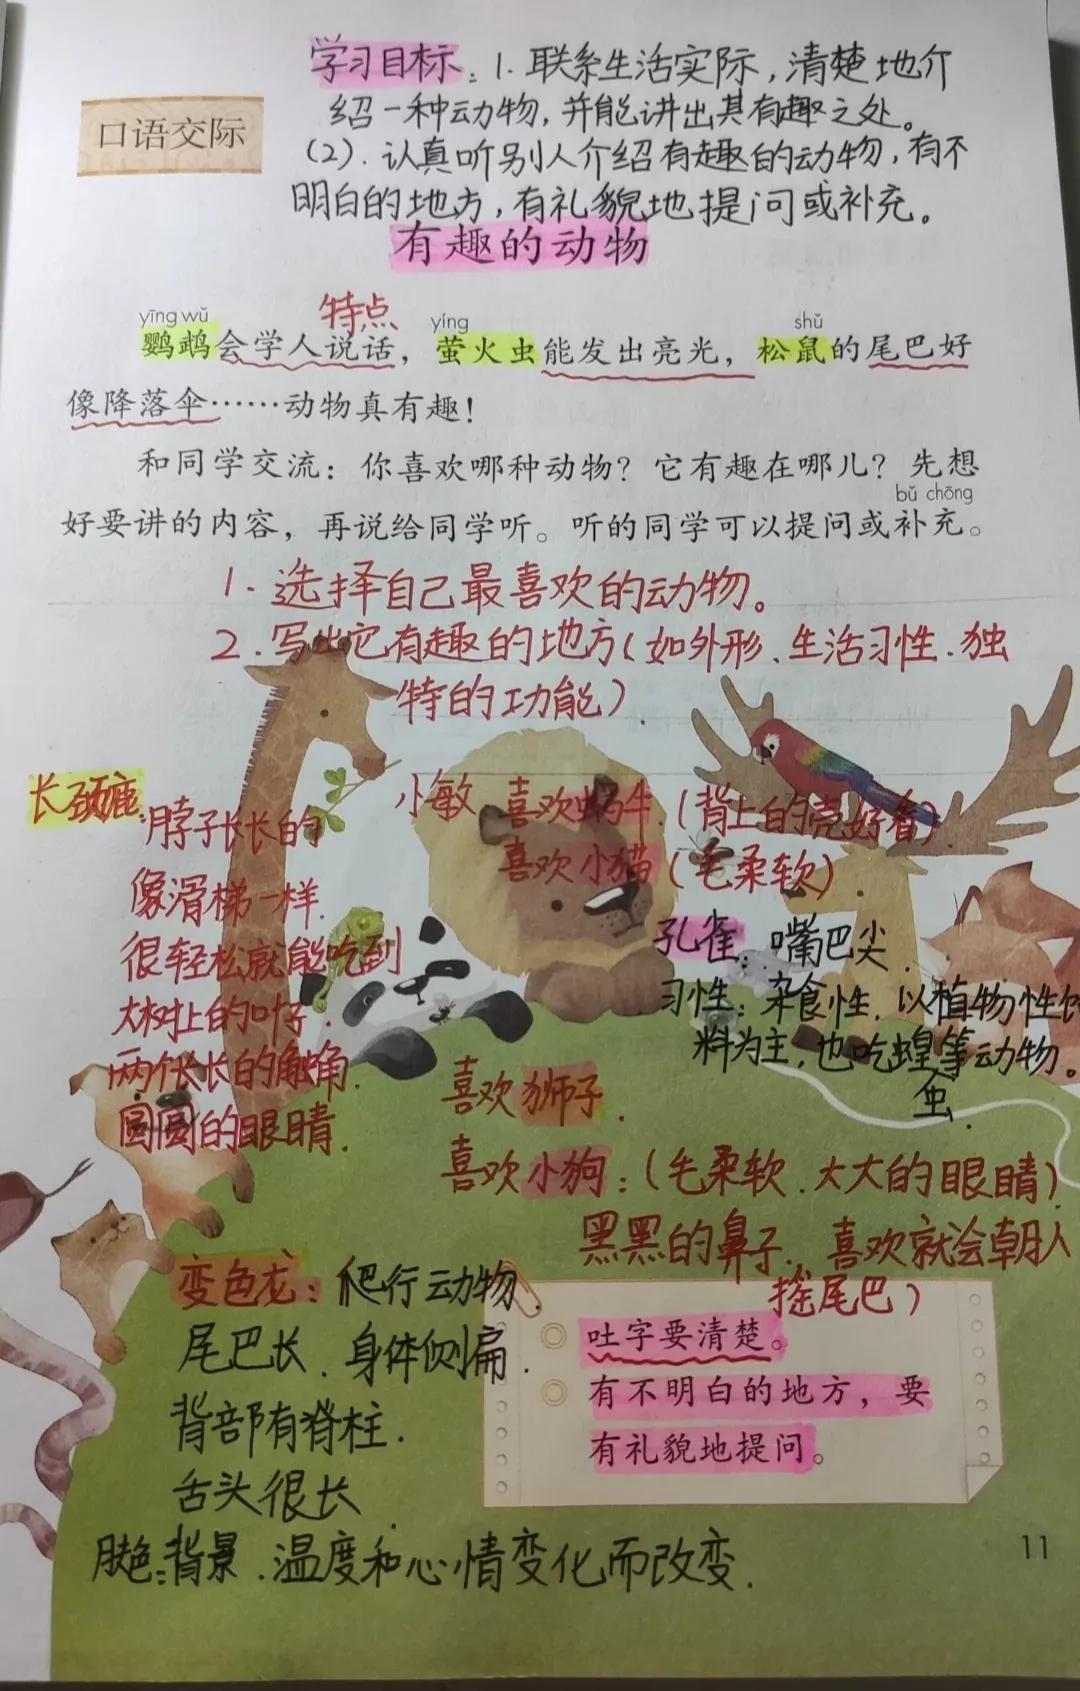 学习目标：1.联系生活实际，清楚地介
绍一种动物，并能讲出其有趣之处。
(2).认真听别人介绍有趣的动物，有不
明白的地方，有礼貌地提问或补充。
口语交际
有趣的动物
特点
yīng wǔ yíng shǔ
鹦鹉会学人说话，萤火虫能发出亮光，松鼠的尾巴好
像降落伞……动物真有趣！
和同学交流：你喜欢哪种动物？它有趣在哪儿？先想
bǔ chōng
好要讲的内容，再说给同学听。听的同学可以提问或补充。
1.选择自己最喜欢的动物。
2.写出它有趣的地方(如外形、生活习性.独
特的功能).
长颈鹿:脖子长长的
像滑梯一样.
很轻松就能吃到
大树上的叶子.
两个长长的角
圆圆的眼睛.
小敏 喜欢蜗牛.(背上的壳好看)
喜欢小猫(毛柔软)
孔雀：嘴巴尖.
习性：杂食性.以植物性饲
料为主,也吃蝗等动物。
虫.
喜欢狮子.
喜欢小狗：(毛柔软.大大的眼睛)
黑黑的鼻子、喜欢就会朝人
摇尾巴)
变色龙：爬行动物.
尾巴长.身体侧扁.
背部有脊柱.
舌头很长.
肤色:背景.温度和心情变化而改变.
吐字要清楚。
有不明白的地方，要
有礼貌地提问。
11